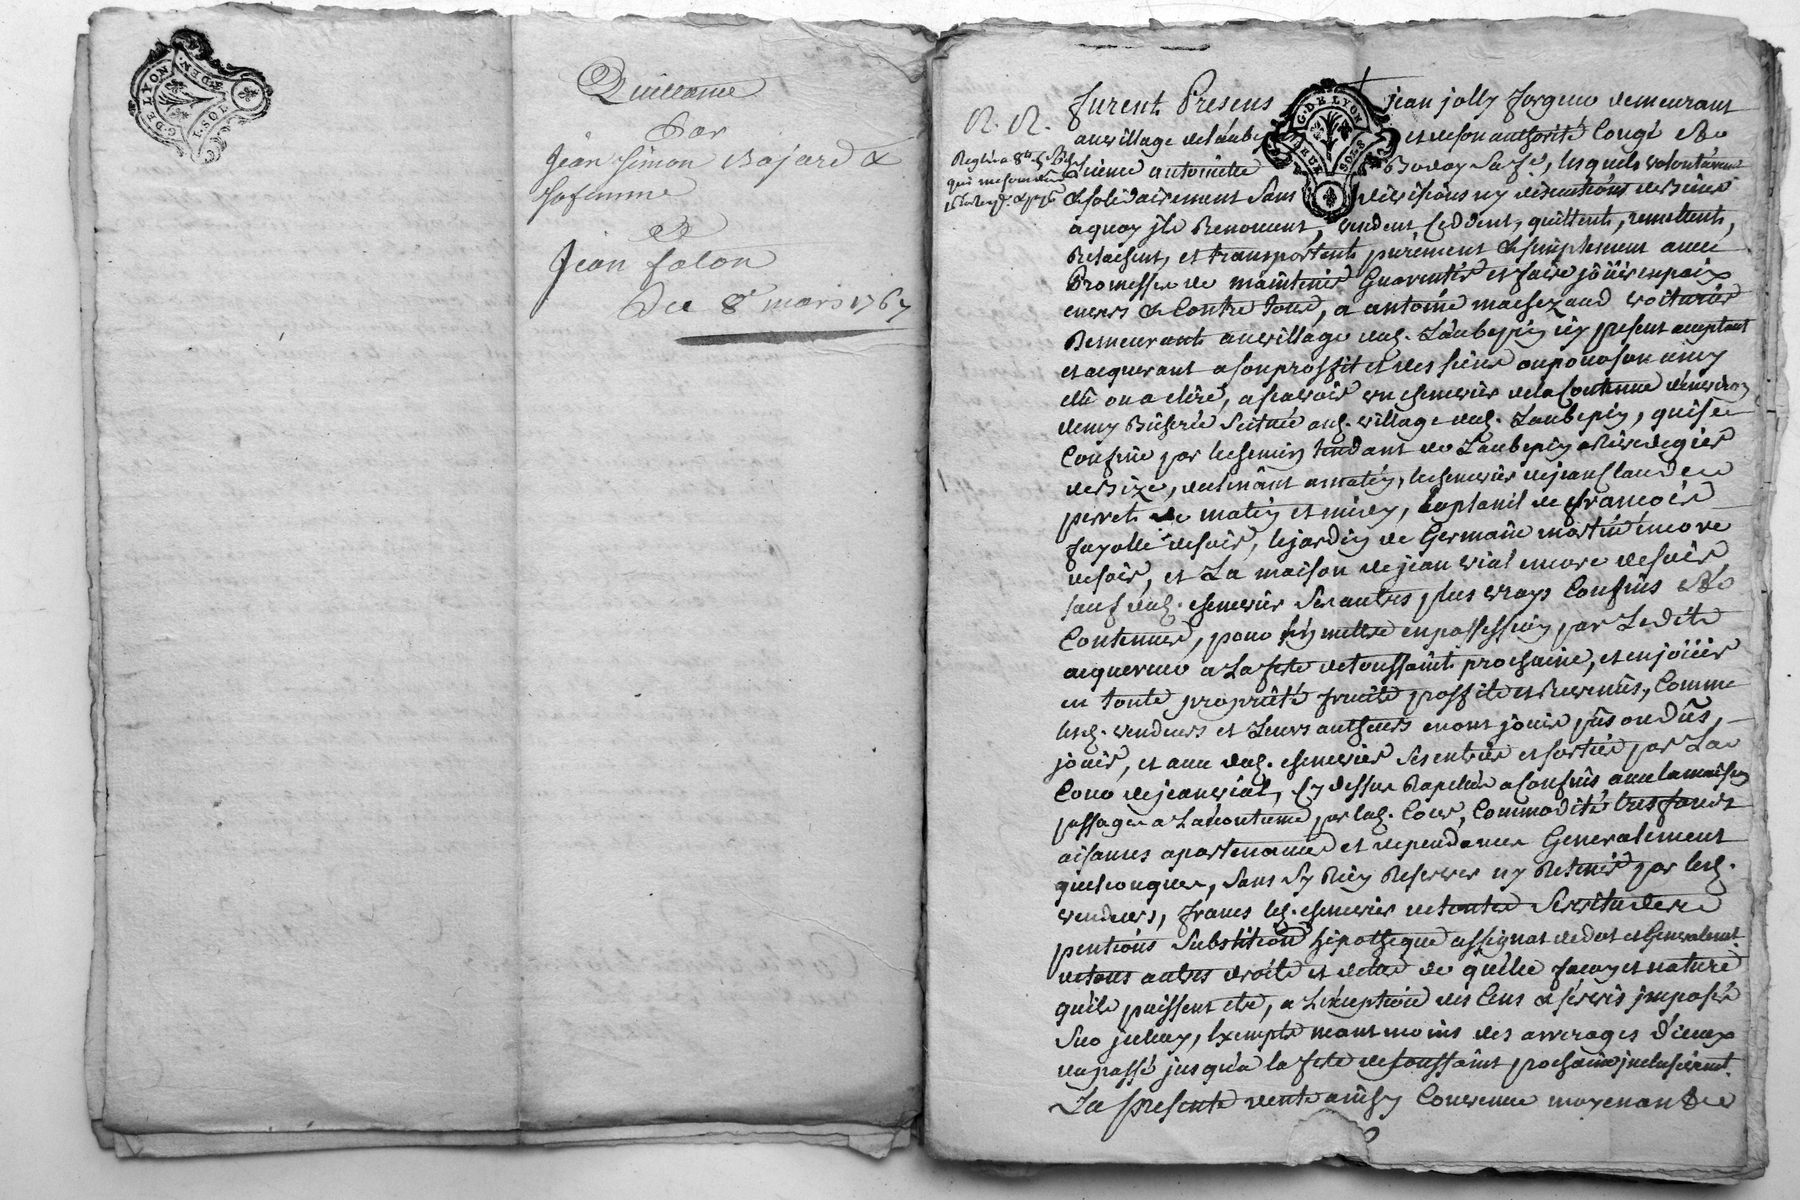 G. DE LYON
1 SOL
DEN.
Quittance
Par
Jean Simon Bajard &
Sa femme
A
Jean falon
Du 8e mars 1767
R. R.
G. DE LYON
2 SOLS
furent Presens jean jolly forgeur demeurant
au village de et de son authorité Congé &
antoinette Boday Sa fe, lesquels volontairemt
& solidairement Sans division ny discution de biens
a quoy ils Renoncent, vendent Ceddent, quittent, remettent,
Relachent, et transportent purement & simplement avec
Promesse de maintenir Guarentir et faire joüir en paix
envers & Contre tous, a antoine voiturier
Demeurant au village dud. Laubepin icy present acceptant
et acquerant a son proffit et des siens ou pour son amy
elû ou a elire, a sçavoir un chenevier de la Contenue d'environ
demy Bicherée Scitué aud. village dud. Laubepin, qui se
Confine par le chemin tendant de Laubepin a Rivedegier
de bize, declinant a matin, le chenevier de jean Claude
perret de matin et midy, de francois
fayolle de soir, le jardin de Germain encore
de soir, et La maison de jean vial encore de soir
sauf dud. chenevier Ses autres plus vrays Confins &
Contenues, pour s'en mettre en possession par Ledit
acquereur a La fete de toussaint prochaine, et en joüir
en toute proprieté fruits proffits et Revenus, Comme
lesd. vendeurs et Leurs autheurs en ont jouis pûs ou dûs
joüir, et avec dud. chenevier Ses entrées et sorties par La
Cour de jean vial, Cy dessus Rapellée a Confins avec la maison
passages a Lacoutumé par lad. Cour, Commodités tres fonds
aisances apartenances et dependances Generalement
quelconques, Sans Sy Rien Reserver ny Retenir par lesd.
vendeurs, francs led. chenevier de toutes Servitudes
pentions Substitution hipotheque assignat de dot et Generalemt
de tous autres droits et detes de quelle façon et nature
qu'ils puissent etre, a L'exception des Cens & servis imposés
Sur jceluy, Exempts neant moins des arrerages d'iceux
du passé jusqu'a la fete de toussaint prochaine jnclusivemt.
La presente vente ainsy Convenue moyenant